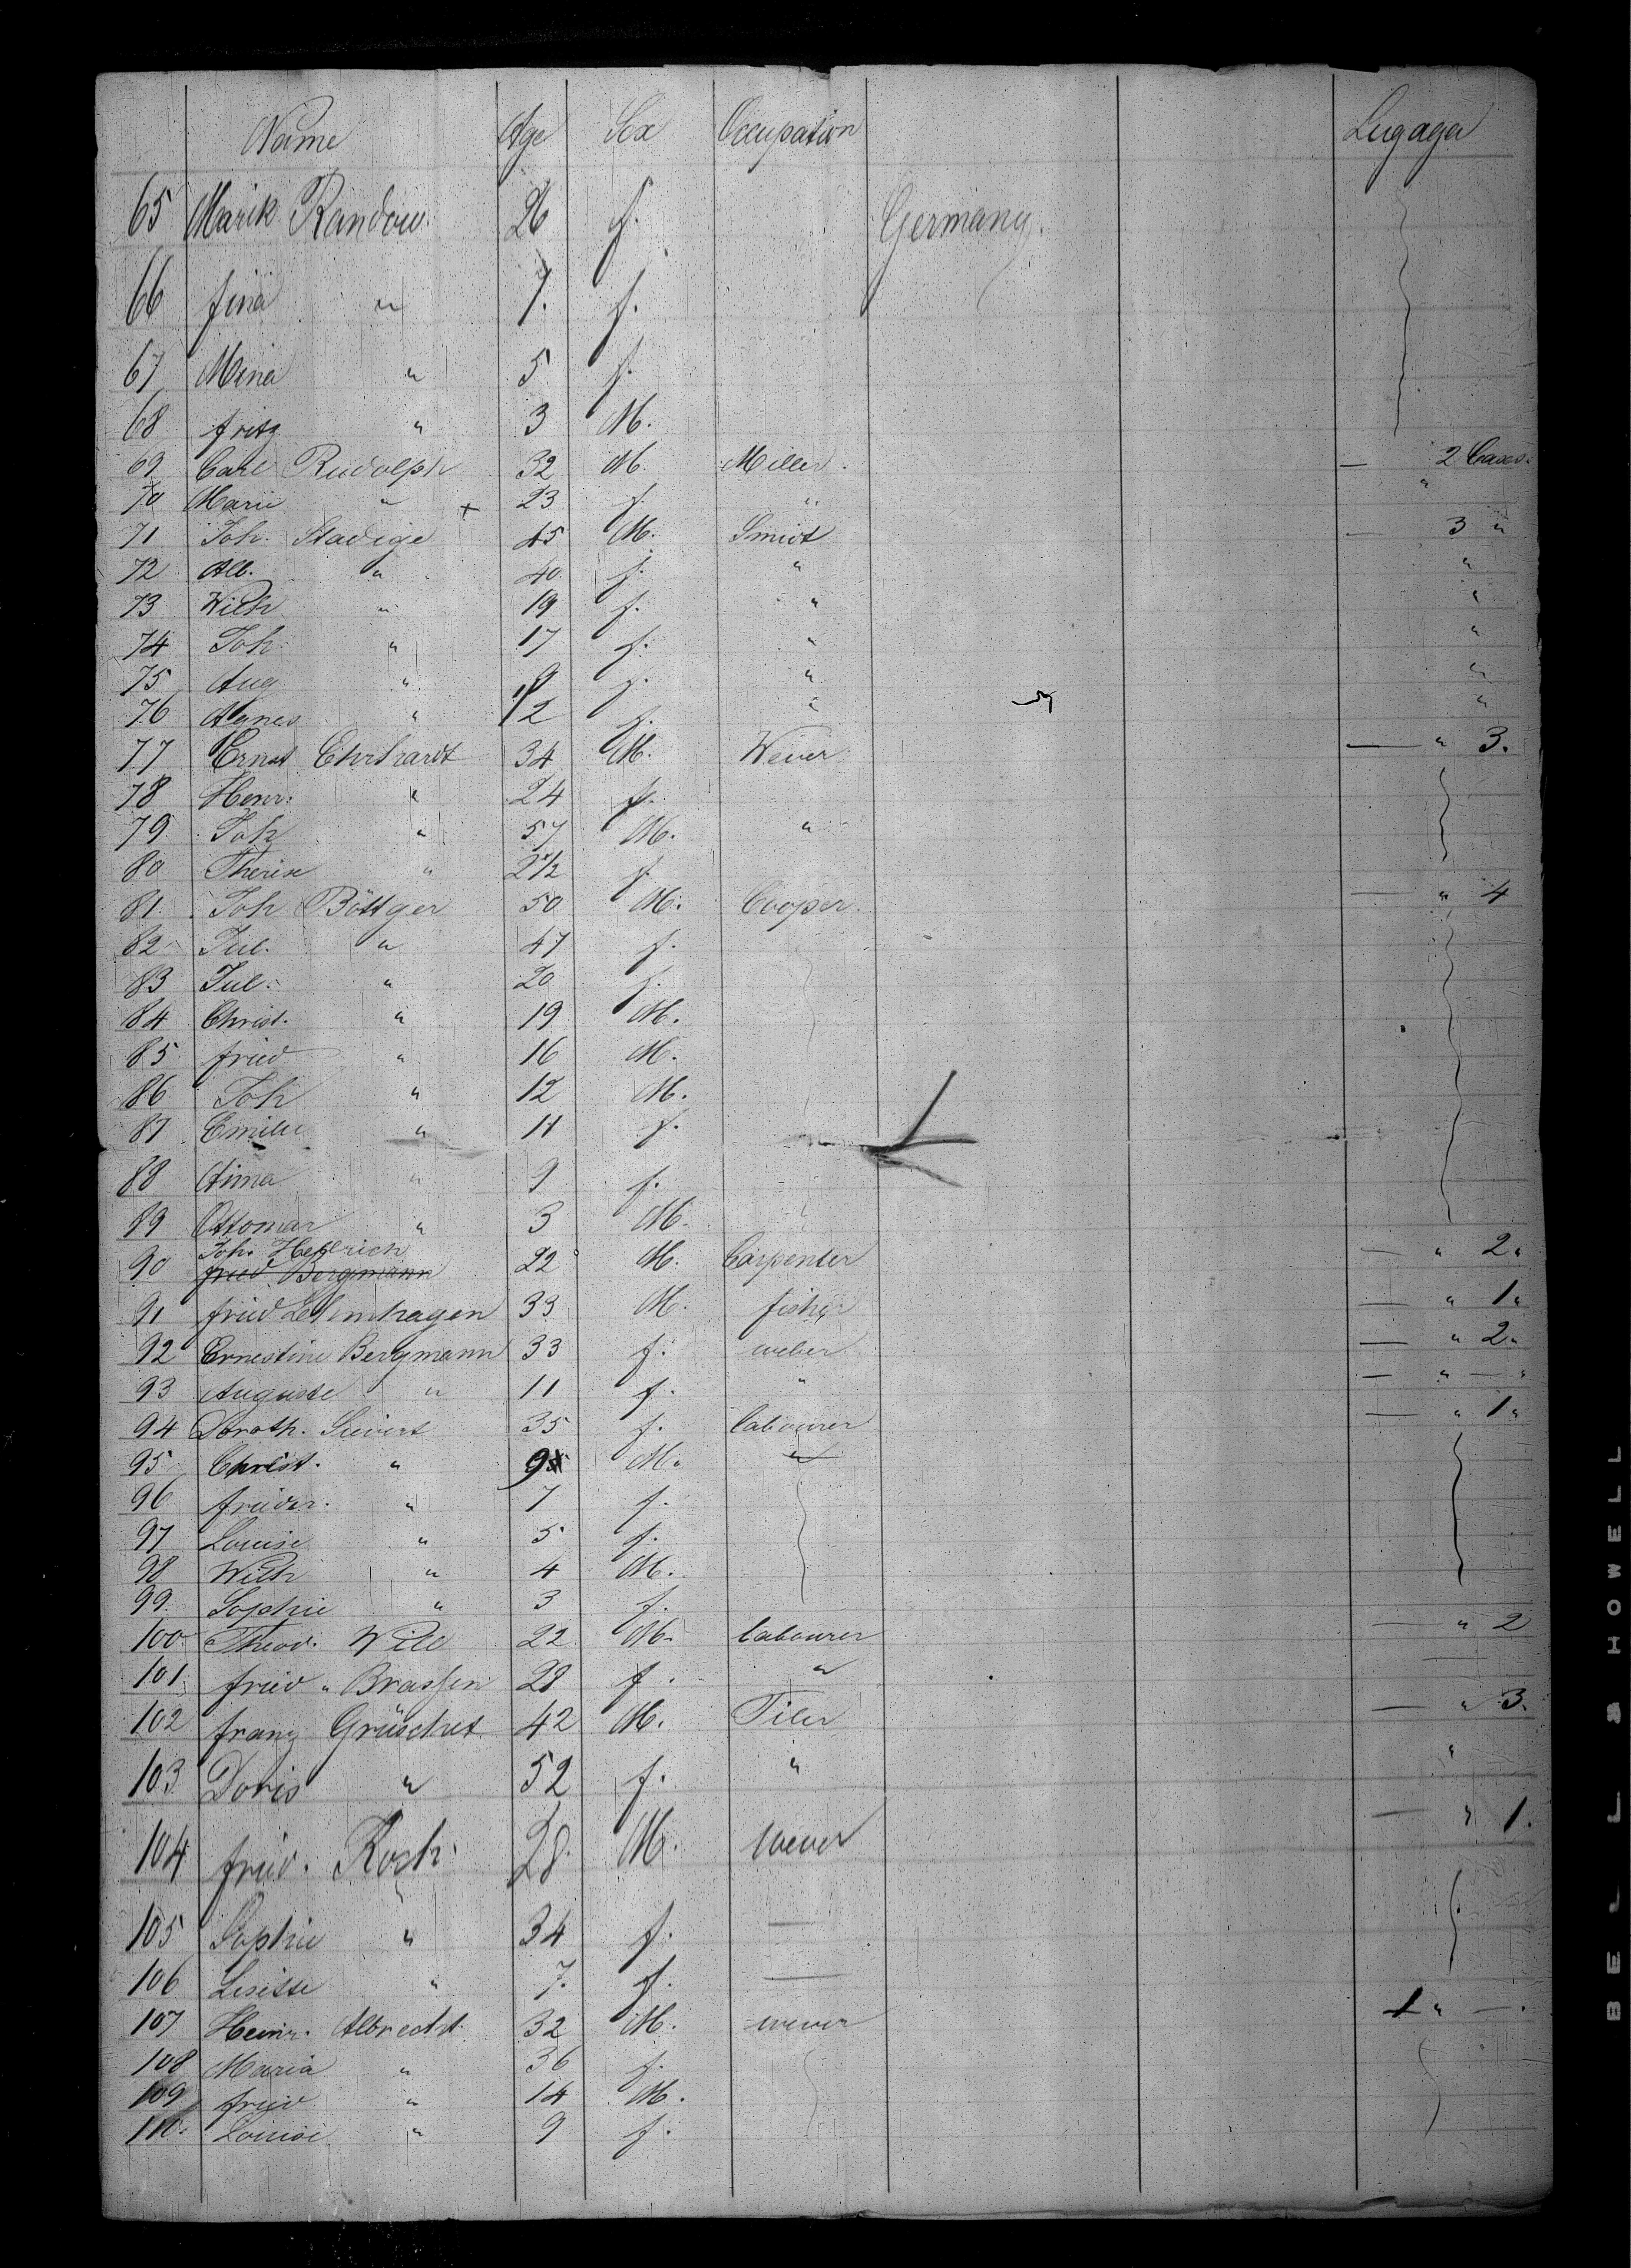 Name Age Sex Occupation Lugage
65 Marik Randow. 26 f. Germany.
66 fina " 7. f.
67 Mina " 5 f.
68 fritz " 3 M.
69 Carl Rudolph 32 M. Miller. — 2 Cases.
70 Marie " + 23 f. " "
71 Joh. Stadige 45 M. Smidt — 3 "
72 Alb. " 40. f. " "
73 Wilh " 19 f. " "
74 Joh. " 17 f. " "
75 Aug " 9 f. " "
76 Agnes " 1/2 f. " "
77 Ernst Ehrhardt 34 M. Wever — " 3.
78 Henr: " 24 f.
79 Joh " 57 M. "
80 Therese " 2 1/2 f.
81. Joh Böttger 50 M. Cooper. — " 4
82 Jul. " 47 f.
83 Jul. " 20 f.
84 Christ. " 19 M.
85 fried " 16 M.
86 Joh " 12 M.
87 Emilie " 11 f.
88 Anna " 9 f.
89 Ottomar " 3 M.
Joh. Hellrich
90 fried Bergmann 22 M. Carpenter — " 2 "
91 fried 33 M. fisher — " 1 "
92 Ernestine Bergmann 33 f. weber — " 2 "
93 Auguste " 11 f. " — " — "
94 Doroth. Sievert 35 f. labourer — " 1 "
95 Christ. " 9 M. "
96 frieder. " 7 f.
97 Louise " 5 f.
98 Wilh " 4 M.
99. Sophie " 3 f.
100. Theod. Wile 22 M. labourer — " 2
101. fried " Brassen 28 f. " —
102 franz Grüschet 42 M. Tiler — " 3.
103 Doris " 52 f. " "
104 fried. Koch. 28. M. wever — " 1.
105 Sophie " 34 f. —
106 Lisette " 7. f. —
107 Heinr. Albrecht. 32 M. wever 1 " —.
108 Maria " 36 f.
109 fried " 14 M.
110. Louise " 9 f.
BELL & HOWELL